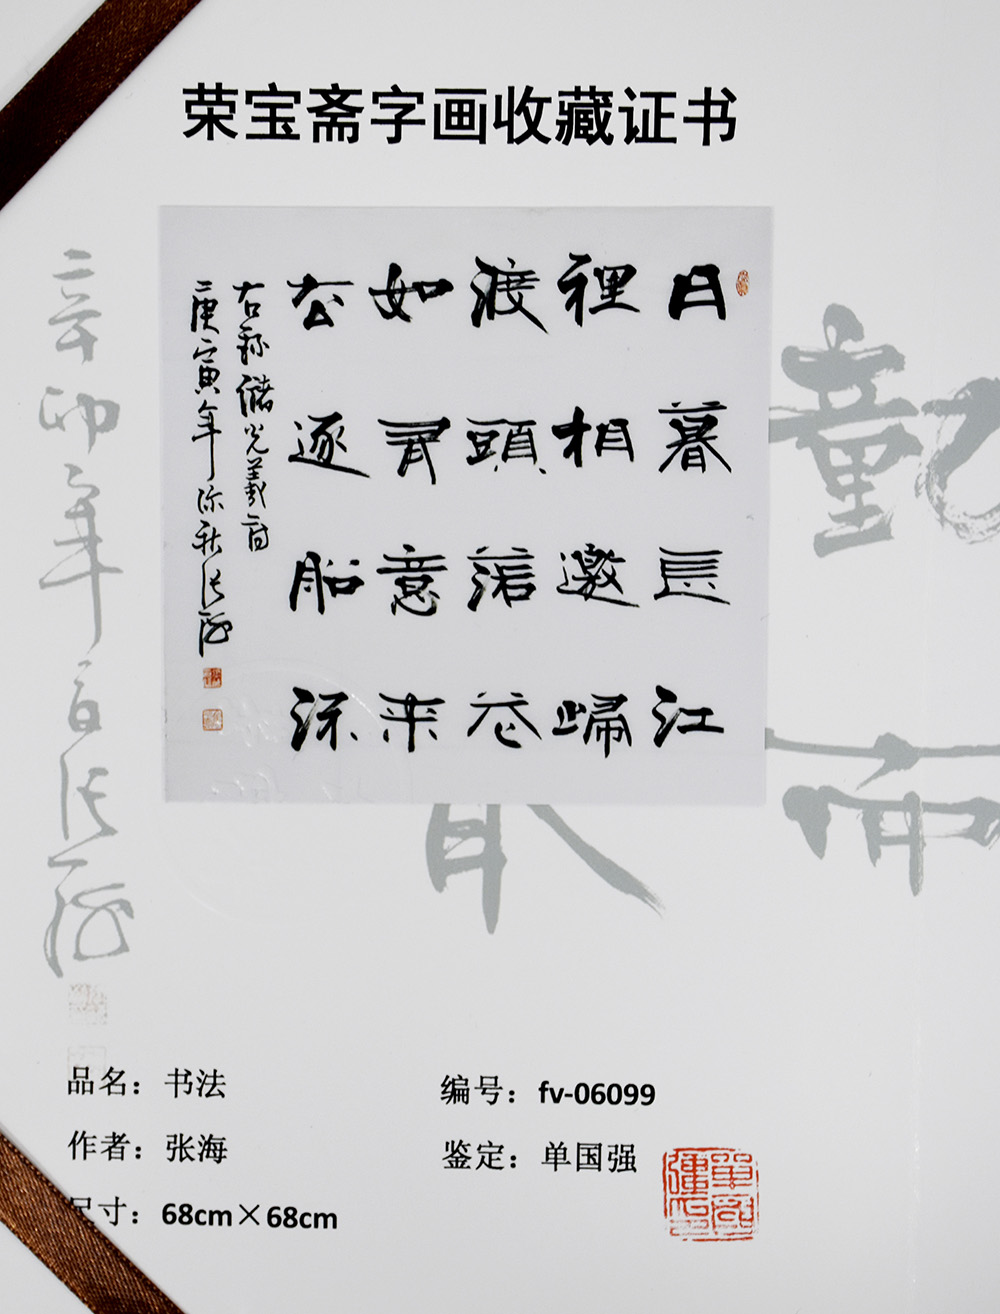 荣宝斋字画收藏证书
日暮長江
裡相邀歸
渡頭落花
如有意来
去逐船流
右録儲光羲詩
庚寅年秋张海
辛卯年张海
品名：书法
编号：fv-06099
作者：张海
鉴定：单国强
單國強印
尺寸：68cm×68cm